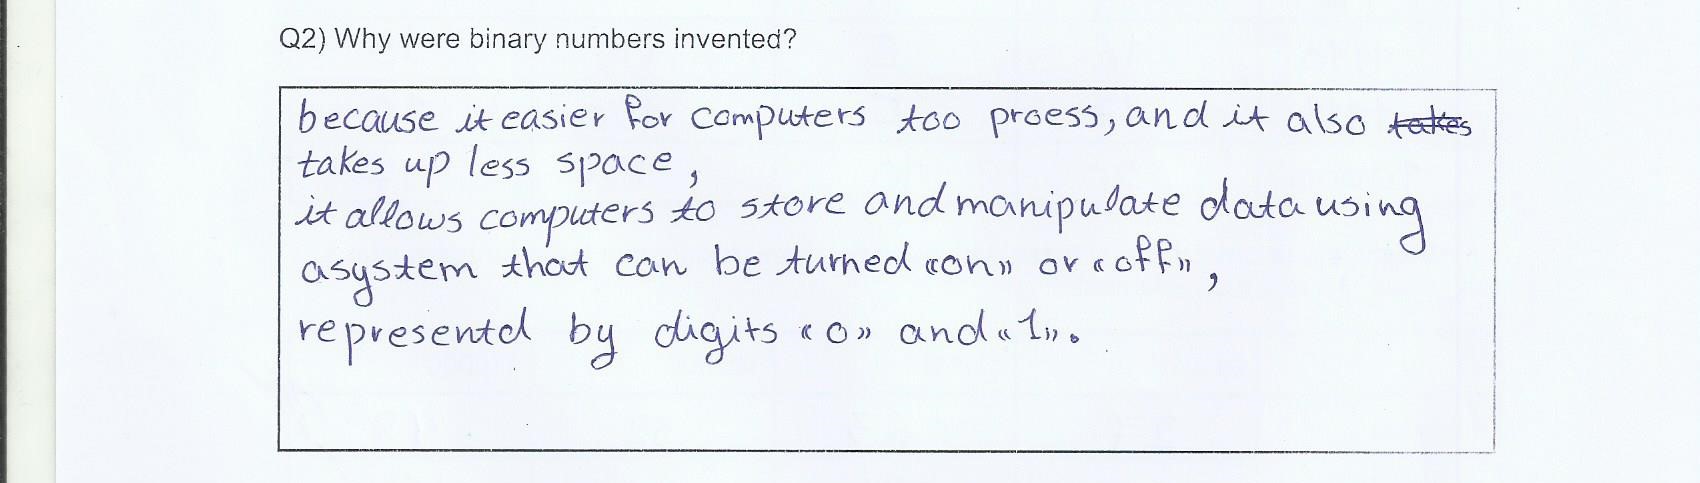 Q2) Why were binary numbers invented?
because it easier for computers too proess, and it also takes
takes up less space,
it allows computers to store and manipulate data using
asystem that can be turned «on» or «off»,
representd by digits «0» and «1».